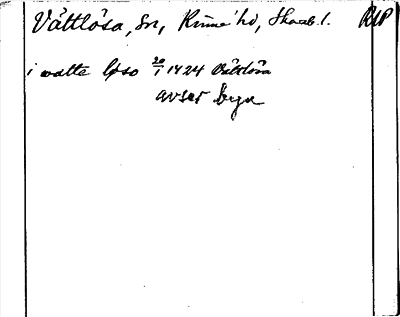 Vättlösa, sn, Kinne hd, Skarab. l. RAP
i watte løso 20/1 1424 Vättlösa
avser byn